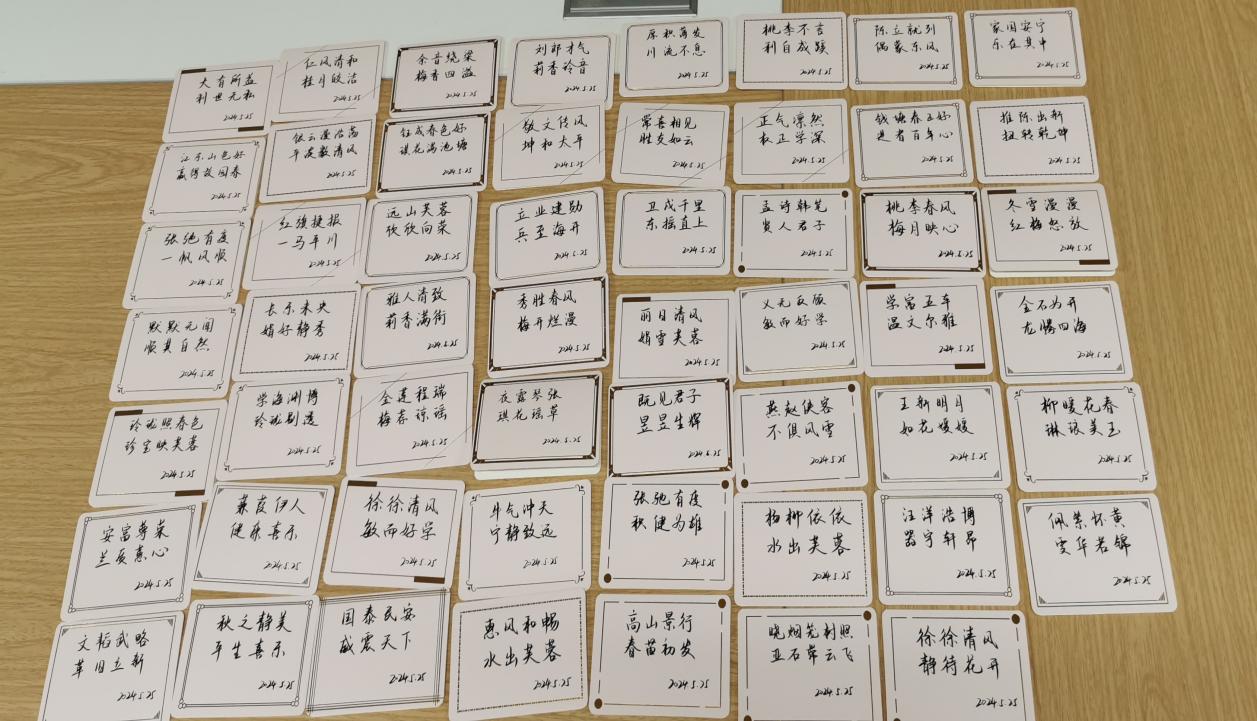 大有所益
利世无私
2024.5.25
仁风清和
桂月皎洁
2024.5.25
余音绕梁
梅香四溢
2024.5.25
刘郎才气
莉香聆音
2024.5.25
厚积薄发
川流不息
2024.5.25
桃李不言
利自成蹊
2024.5.25
陈立就列
偶蒙东风
2024.5.25
家国安宁
乐在其中
2024.5.25
江东山色好
赢得故园春
2024.5.25
银云漫浩荡
平波毅清风
2024.5.25
钰成春色好
淇花满池塘
2024.5.25
敬文传风
坤和太平
2024.5.25
常喜相见
胜友如云
2024.5.25
正气凛然
权正学深
2024.5.25
钱塘春正好
进者百年心
2024.5.25
推陈出新
扭转乾坤
2024.5.25
张弛有度
一帆风顺
2024.5.25
红旗捷报
一马平川
2024.5.25
远山芙蓉
欣欣向荣
2024.5.25
立业建勋
兵至海开
2024.5.25
卫戍千里
东摇直上
2024.5.25
孟诗韩笔
贵人君子
2024.5.25
桃李春风
梅月映心
2024.5.25
冬雪漫漫
红梅怒放
2024.5.25
默默无闻
顺其自然
2024.5.25
长乐未央
娟好静秀
2024.5.25
雅人清致
莉香满街
2024.5.25
秀胜春风
梅开烂漫
2024.5.25
丽日清风
娟雪芙蓉
2024.5.25
义无反顾
敏而好学
2024.5.25
学富五车
温文尔雅
2024.5.25
金石为开
龙腾四海
2024.5.25
玲珑照春色
珍宝映芙蓉
2024.5.25
学海渊博
玲珑剔透
2024.5.25
金莲程瑞
梅春琼瑶
2024.5.25
夜露琴张
琪花瑶草
2024.5.25
既见君子
昱昱生辉
2024.5.25
燕赵侠客
不惧风雪
2024.5.25
王新明月
如花媛媛
2024.5.25
柳暖花春
琳琅美玉
2024.5.25
安富尊荣
兰质蕙心
2024.5.25
蒹葭伊人
健康喜乐
2024.5.25
徐徐清风
敏而好学
2024.5.25
斗气冲天
宁静致远
2024.5.25
张弛有度
积健为雄
2024.5.25
杨柳依依
水出芙蓉
2024.5.25
汪洋浩博
器宇轩昂
2024.5.25
佩紫怀黄
雯华若锦
2024.5.25
文韬武略
革旧立新
2024.5.25
秋之静美
平生喜乐
2024.5.25
国泰民安
威震天下
2024.5.25
惠风和畅
水出芙蓉
2024.5.25
高山景行
春苗初发
2024.5.25
晓烟笼树照
亚石岸云飞
2024.5.25
徐徐清风
静待花开
2024.5.25